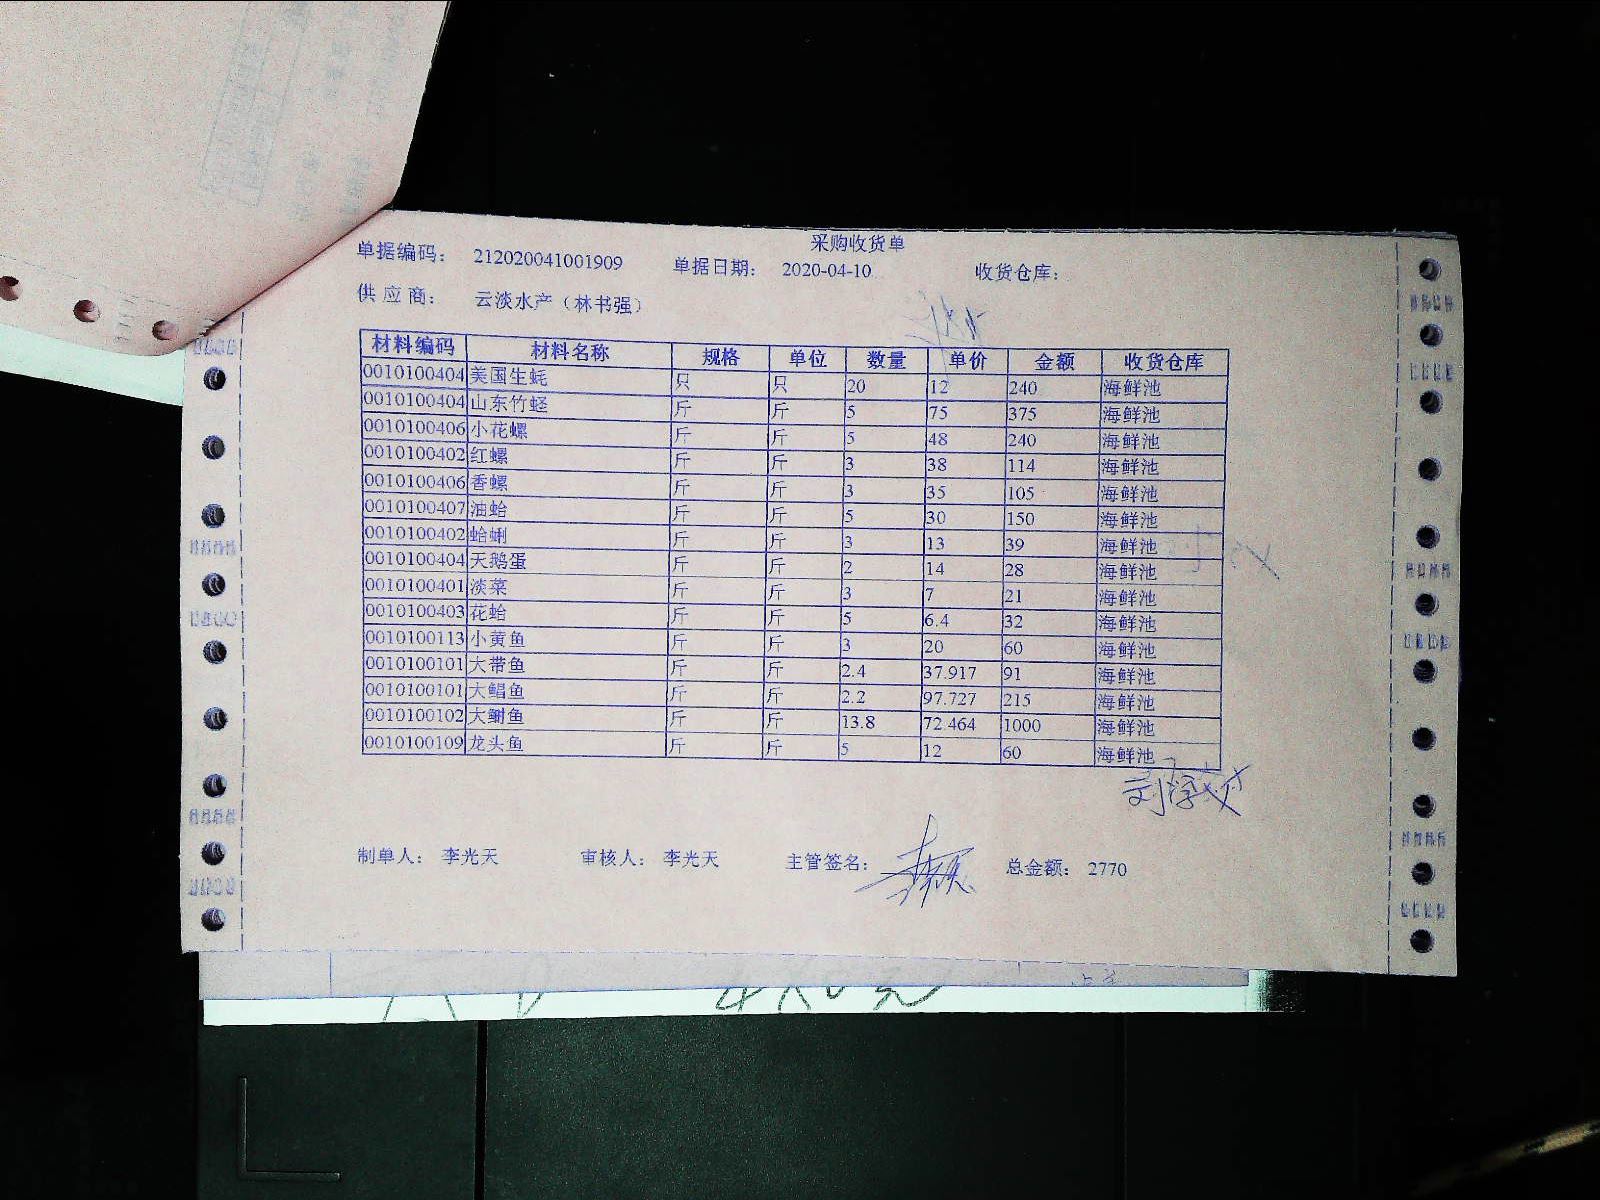 采购收货单
单据编码： 212020041001909 单据日期： 2020-04-10 收货仓库：
供 应 商： 云淡水产（林书强）
材料编码 材料名称 规格 单位 数量 单价 金额 收货仓库
0010100404 美国生蚝 只 只 20 12 240 海鲜池
0010100404 山东竹蛏 斤 斤 5 75 375 海鲜池
0010100406 小花螺 斤 斤 5 48 240 海鲜池
0010100402 红螺 斤 斤 3 38 114 海鲜池
0010100406 香螺 斤 斤 3 35 105 海鲜池
0010100407 油蛤 斤 斤 5 30 150 海鲜池
0010100402 蛤蜊 斤 斤 3 13 39 海鲜池
0010100404 天鹅蛋 斤 斤 2 14 28 海鲜池
0010100401 淡菜 斤 斤 3 7 21 海鲜池
0010100403 花蛤 斤 斤 5 6.4 32 海鲜池
0010100113 小黄鱼 斤 斤 3 20 60 海鲜池
0010100101 大带鱼 斤 斤 2.4 37.917 91 海鲜池
0010100101 大鲳鱼 斤 斤 2.2 97.727 215 海鲜池
0010100102 大鮸鱼 斤 斤 13.8 72.464 1000 海鲜池
0010100109 龙头鱼 斤 斤 5 12 60 海鲜池
制单人： 李光天 审核人： 李光天 主管签名： 总金额： 2770